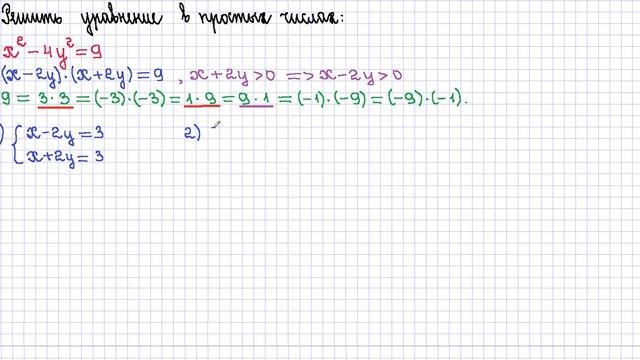 Решить уравнение в простых числах:
x² - 4y² = 9
(x - 2y)·(x + 2y) = 9 , x + 2y > 0 => x - 2y > 0
9 = 3·3 = (-3)·(-3) = 1·9 = 9·1 = (-1)·(-9) = (-9)·(-1).
) { x - 2y = 3 2)
x + 2y = 3